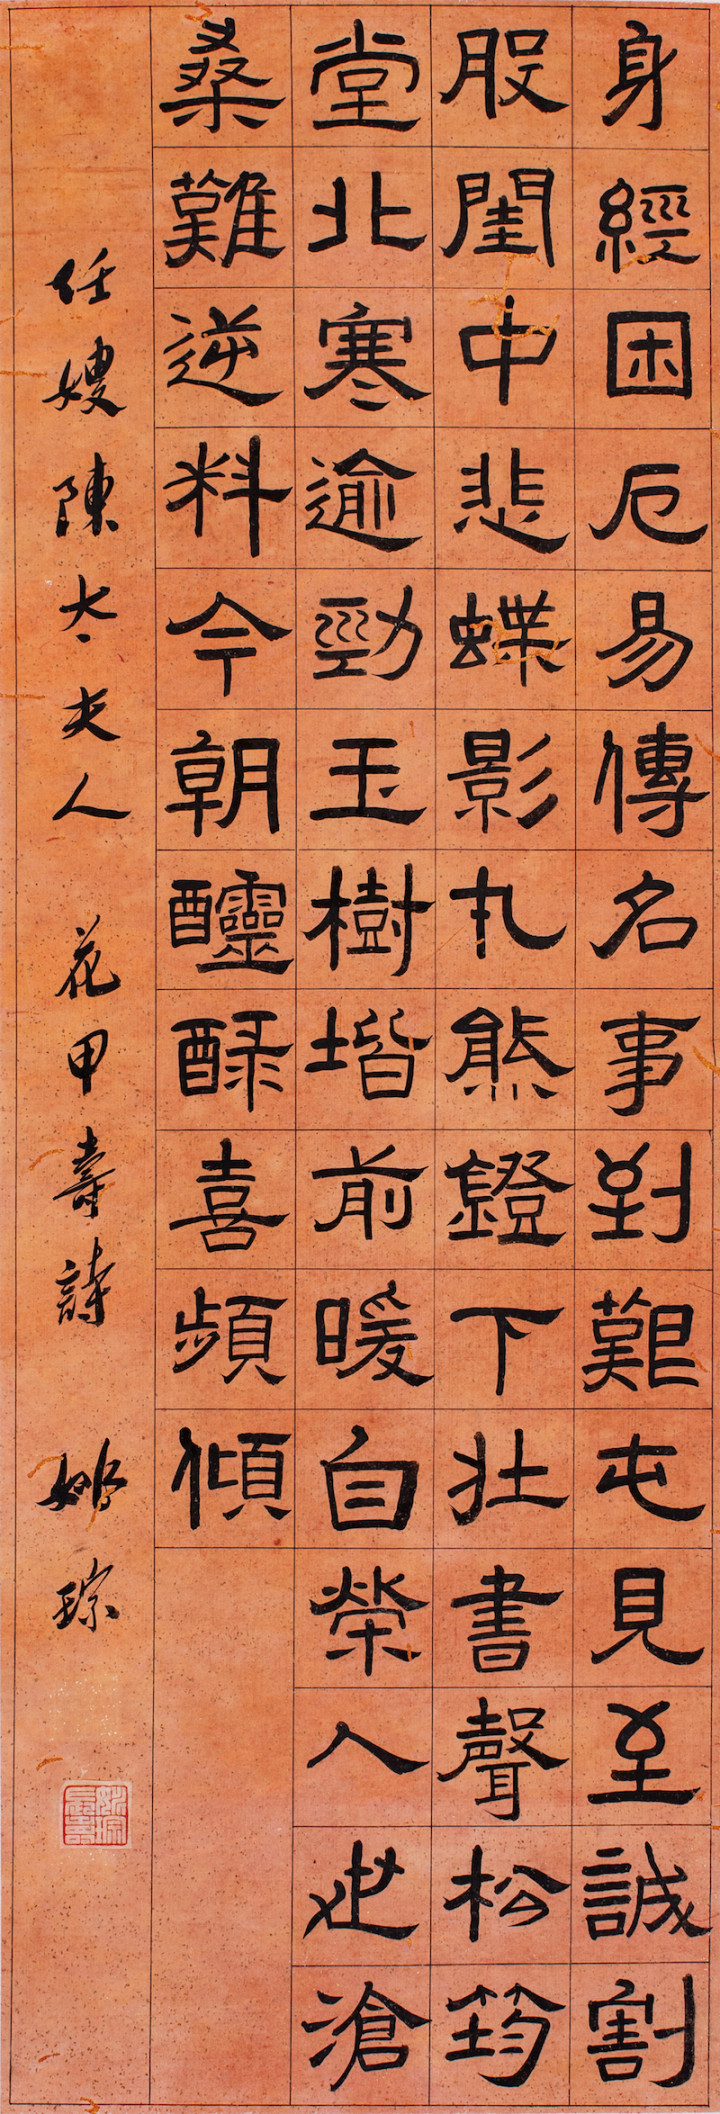 身經困厄易傳名事到艱屯見至誠割
股閨中悲蝶影丸熊鐙下壯書聲松筠
堂北寒逾勁玉樹堦前暖自榮人世滄
桑難逆料今朝醽醁喜頻傾
任嫂陳太夫人 花甲壽詩 姚琮